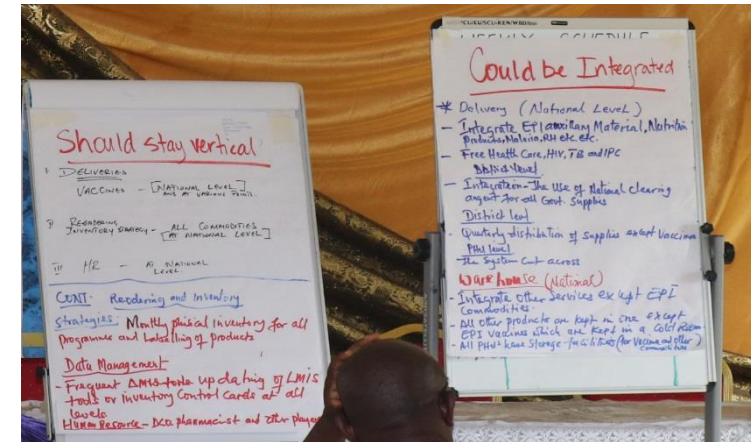 Should stay vertical
I DELIVERIES
VACCINES - [NATIONAL LEVEL]
AND AT VARIOUS
II REORDERING
INVENTORY STRATEGY - ALL COMMODITIES
[AT NATIONAL LEVEL]
III HR - AT NATIONAL
LEVEL
CONT. Reordering and Inventory
Strategies: Monthly phisical inventory for all
programme and labelling of products
Data Management
- Frequent updating of LMIS
tools or inventory Control cards at all
levels
Human Resource - pharmacist and other players
WEEKLY SCHEDULE
Could be Integrated
* Delivery (National Level)
- Integrate EPI auxillary Material, Nutrition
products, Malaria, RH etc. etc.
- Free Health Care, HIV, TB and IPC
District level
- Integration - The use of National clearing
angent for all Govt. Supplies
District level
- Quarterly distribution of Supplies except Vaccines
PHU level
- The System Cut across
Warehouse (National)
- Integrate Other Services except EPI
Commodities.
- All other products are kept in one except
EPI Vaccines which are kept in a Cold Room
- All PHUs have Storage facilities (for Vaccine and other)
Commodities